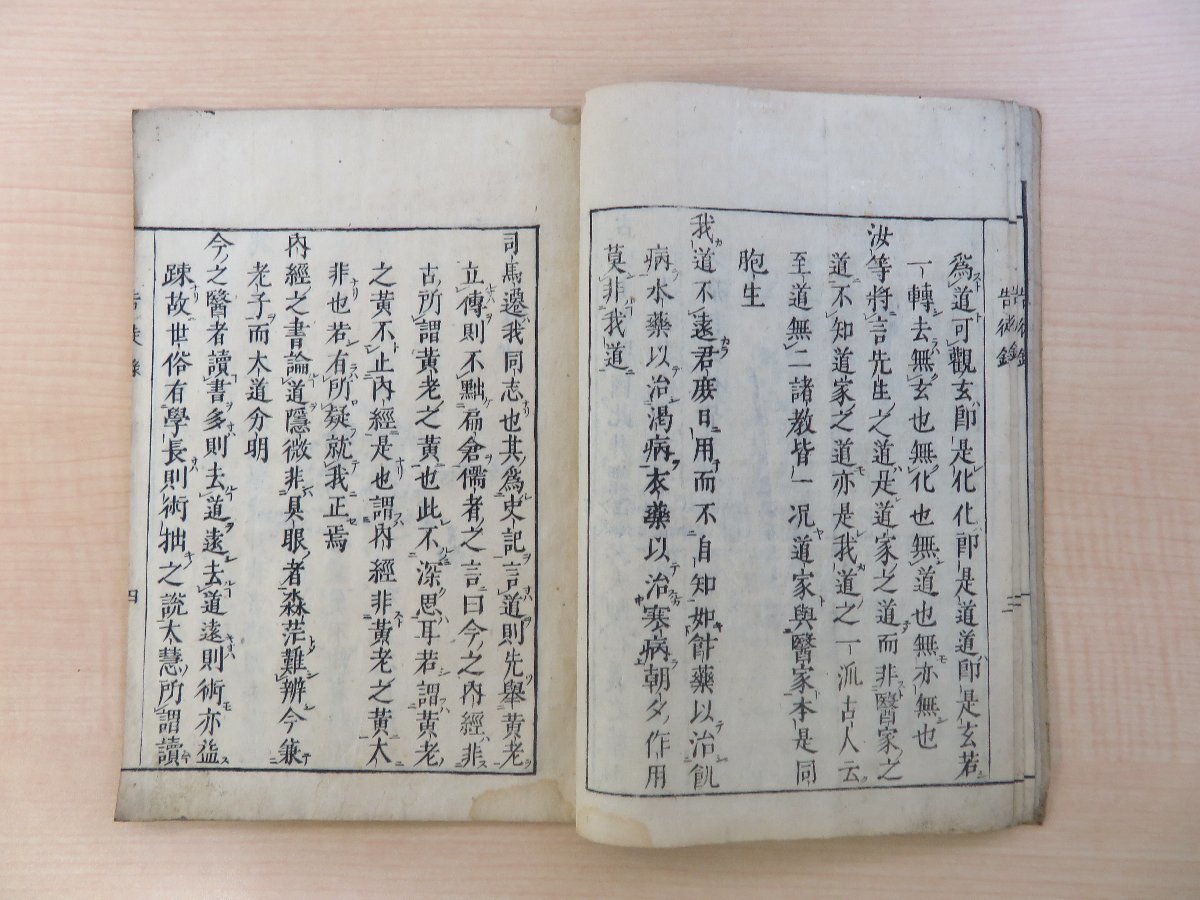 爲道可觀玄即是化化即是道道即是玄若
一轉去無玄也無化也無道也無亦無也
汝等將言先生之道是道家之道而非醫家之
道不知道家之道亦是我道之一派古人云
至道無二諸教皆一况道家與醫家本是同
胞生
我道不遠君庻日用而不自知如餅藥以治飢
病水藥以治渇病衣藥以治寒病朝夕作用
莫非我道
司馬遷我同志也其爲史記言道則先舉黄老
立傳則不黜扁倉儒者之言曰今之内經非
古所謂黄老之黄也此不深思耳若謂黄老
之黄不止内經是也謂内經非黄老之黄大
非也若有所疑就我正焉
内經之書論道隱微非具眼者淼茫難辨今兼
老子而大道分明
今之醫者讀書多則去道遠去道遠則術亦益
踈故世俗有學長則術拙之説大慧所謂讀
四